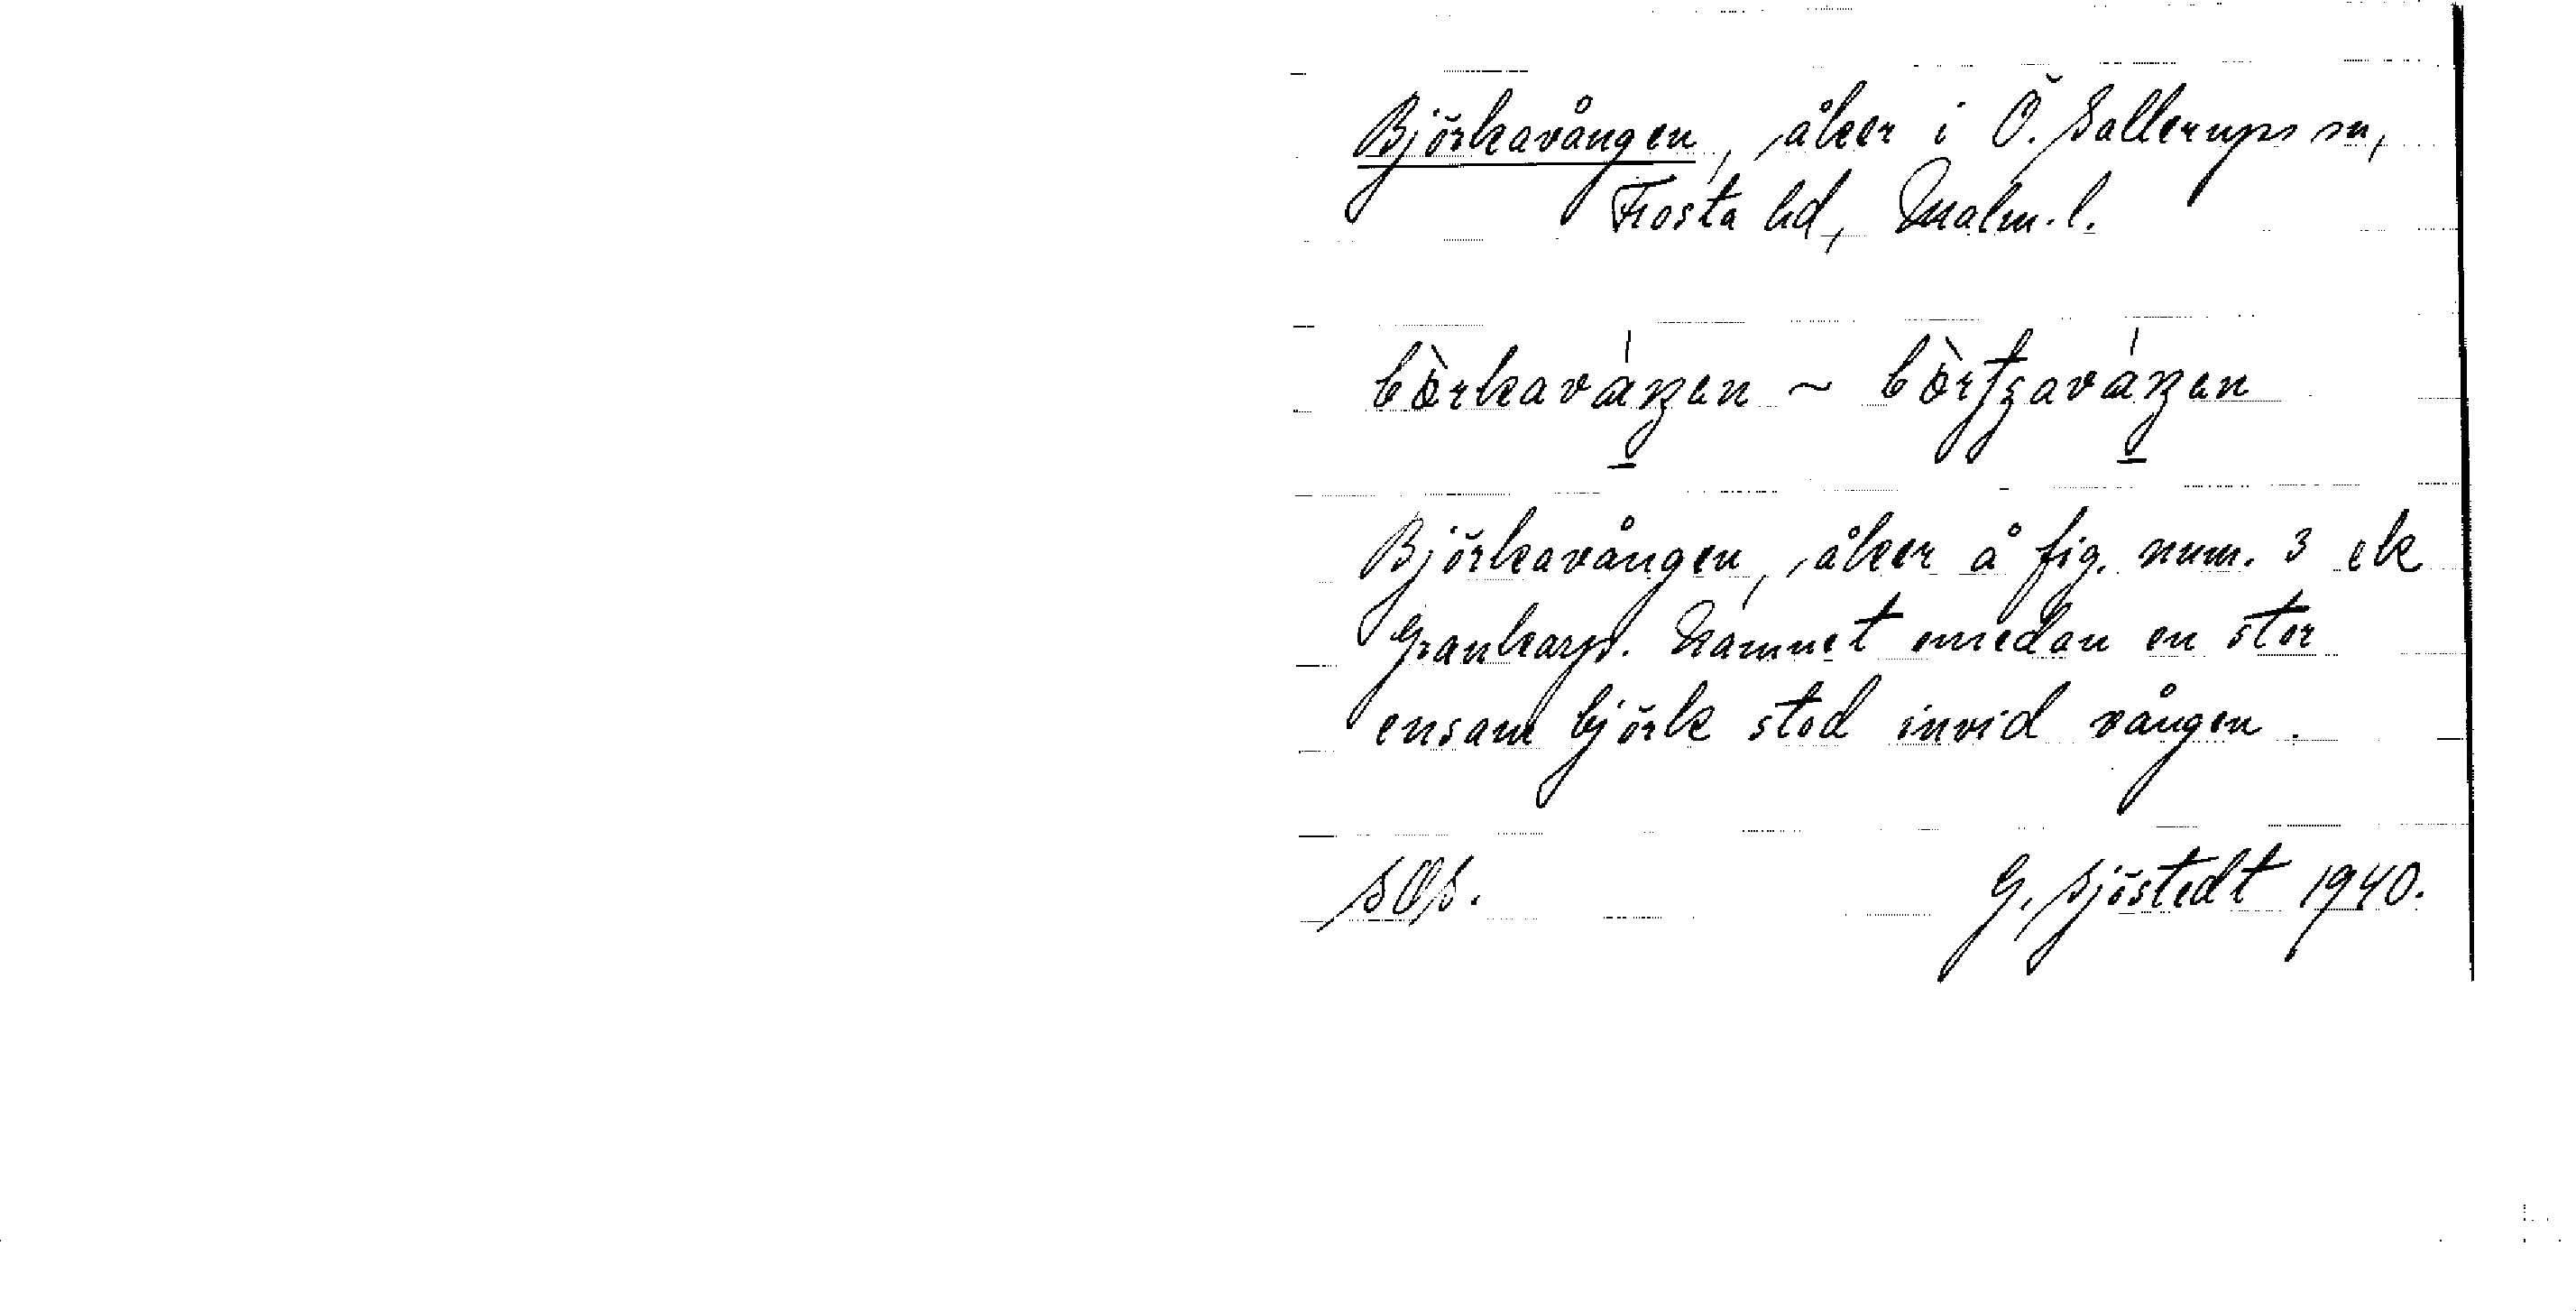 Björkavången, åker i Ö. Sallerups sn,
Frosta hd, Malm. l.
bòrkaváŋen ~ bòrtʒaváŋen
Björkavången, åker å fig. num. 3 ek
Grankarp. Namnet emedan en stor
ensam björk stod invid vången.
SOs.
G. Sjöstedt 1940.